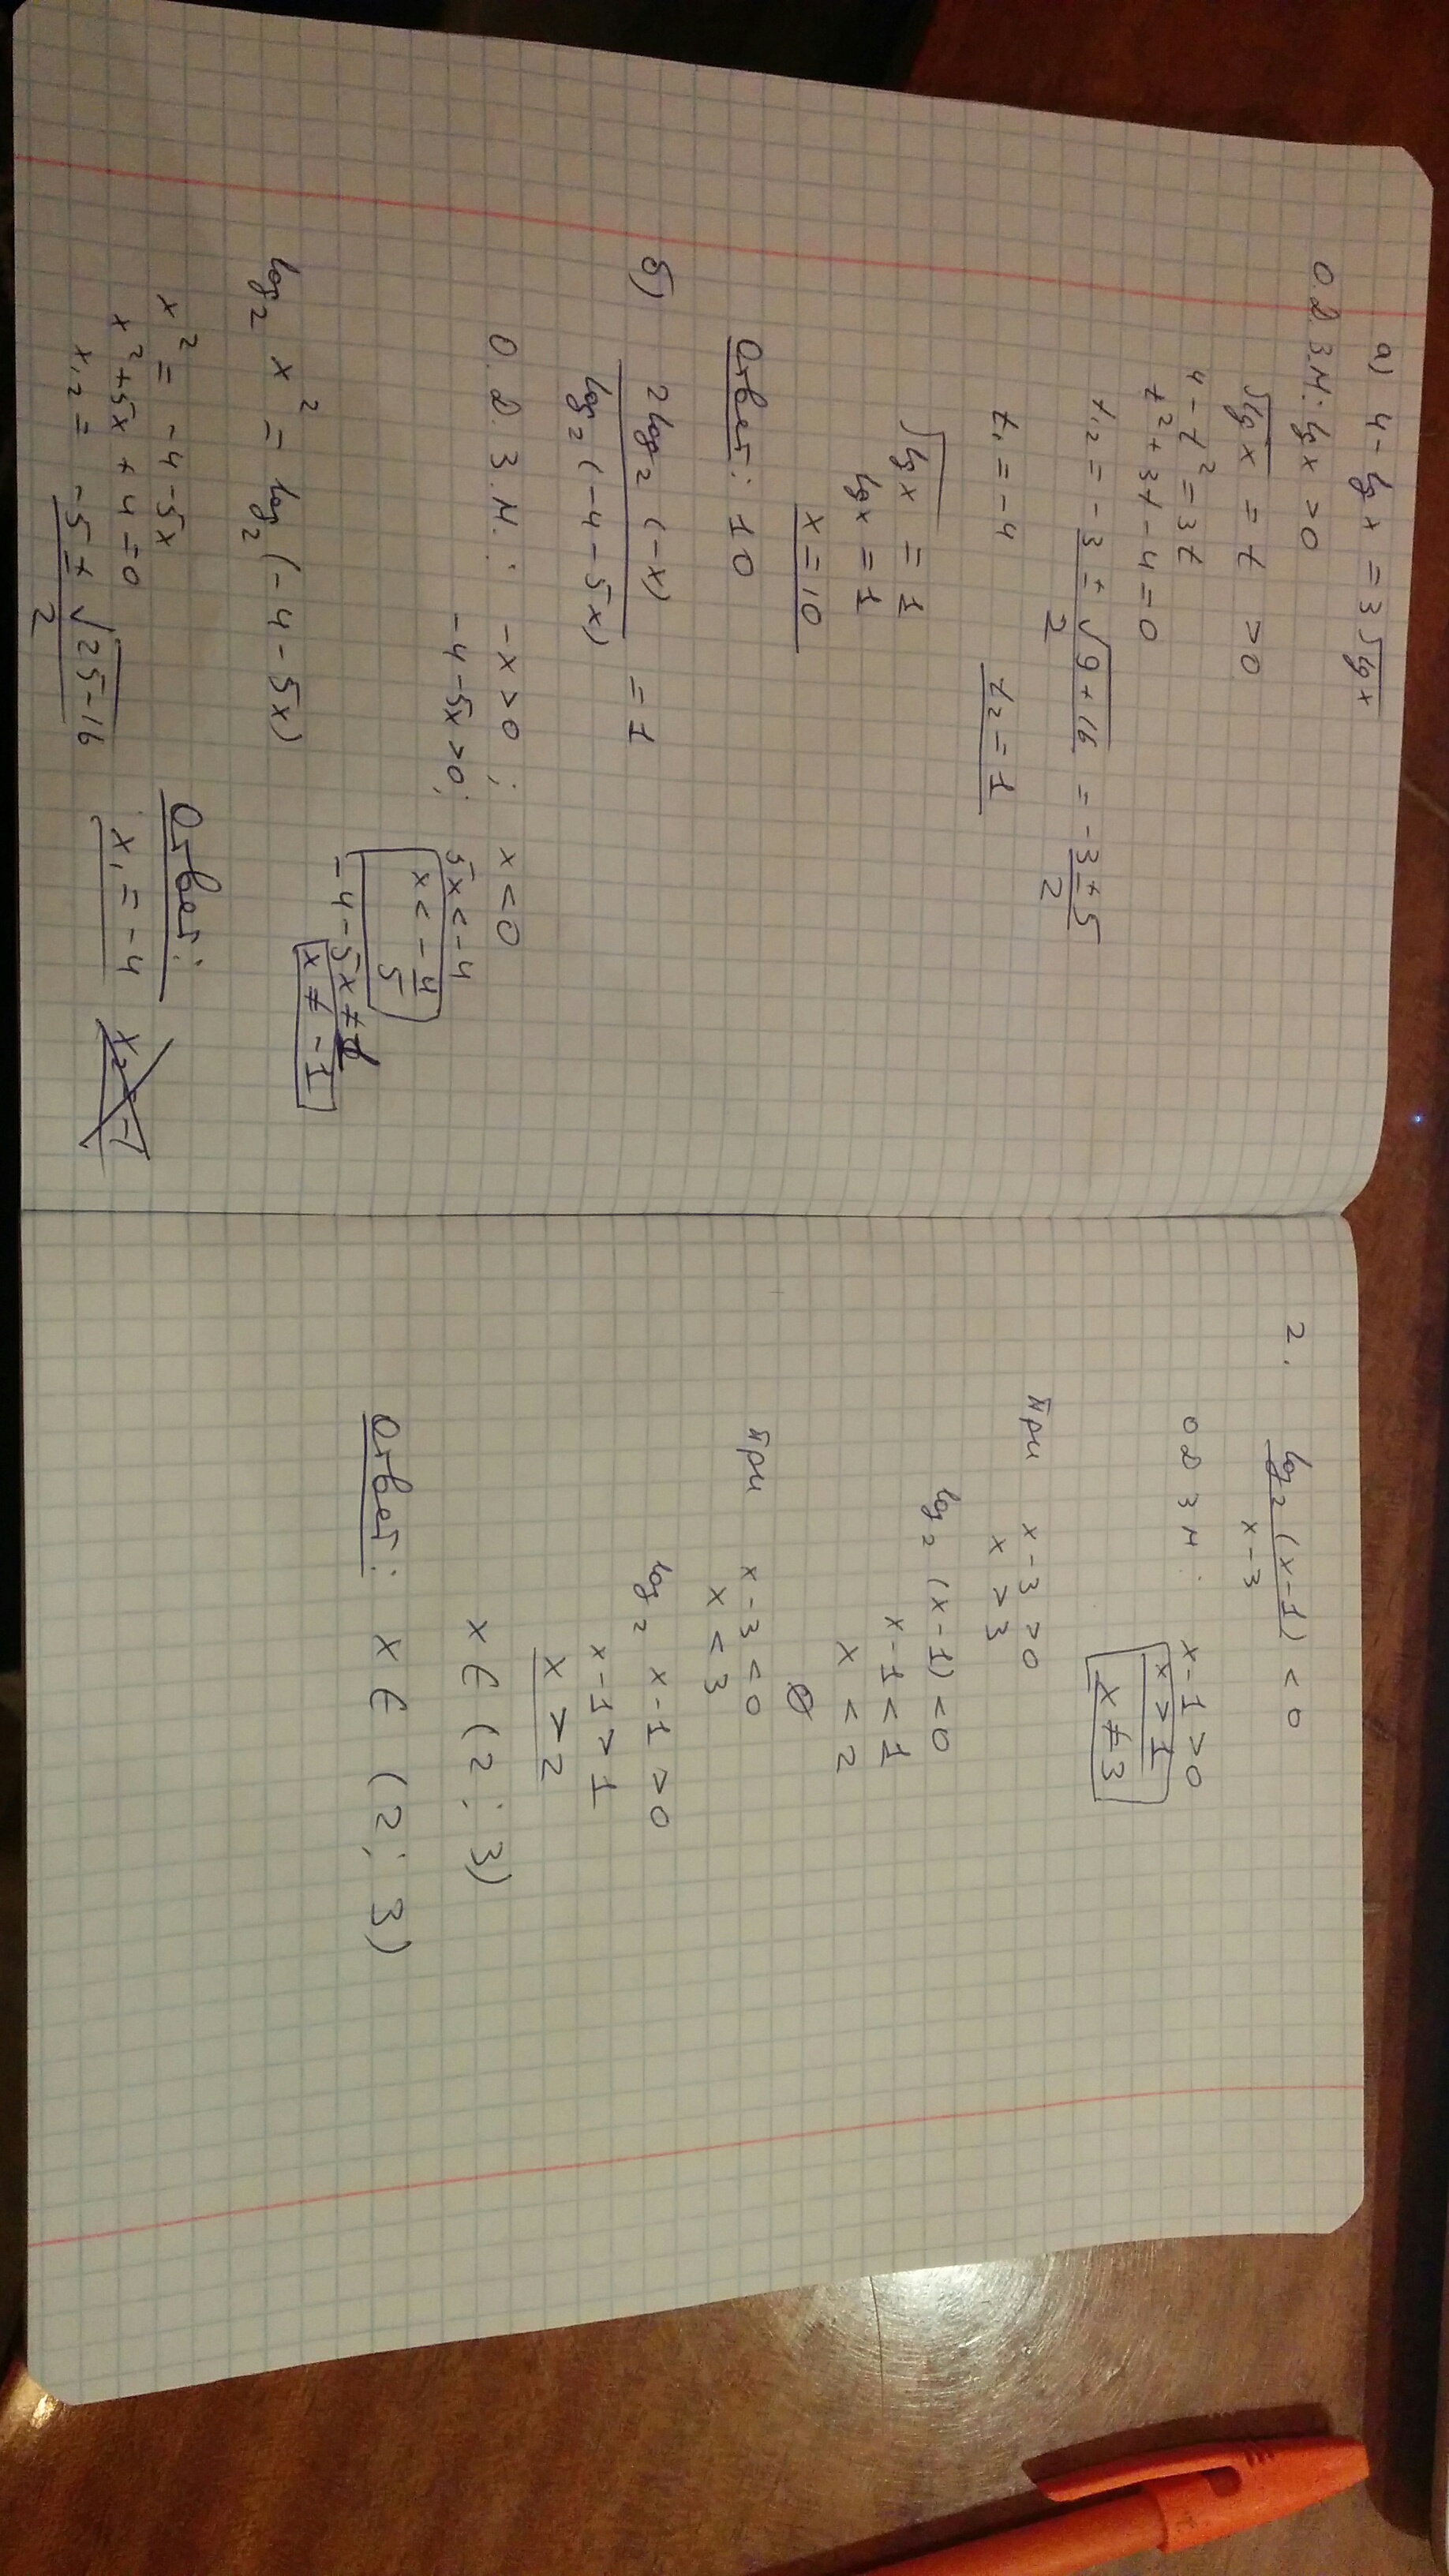 а) 4 - lg x = 3 √lg x
О.Д.З.М: lg x > 0
√lg x = t > 0
4 - t² = 3t
t² + 3t - 4 = 0
t₁,₂ = -3 ± √9 + 16 / 2 = -3 ± 5 / 2
t₁ = -4 t₂ = 1
√lg x = 1
lg x = 1
x = 10
Ответ: 10
б) 2 log₂ (-x) / log₂ (-4 - 5x) = 1
О.Д.З.М.: -x > 0; x < 0
-4 - 5x > 0; 5x < -4
x < - 4/5
-4 - 5x ≠ 1
x ≠ -1
log₂ x² = log₂ (-4 - 5x)
x² = -4 - 5x
x² + 5x + 4 = 0
x₁,₂ = -5 ± √25 - 16 / 2
Ответ:
x₁ = -4 x₂ = -1
2. log₂ (x - 1) / x - 3 < 0
ОДЗМ: x - 1 > 0
x > 1
x ≠ 3
При x - 3 > 0
x > 3
log₂ (x - 1) < 0
x - 1 < 1
x < 2
∅
При x - 3 < 0
x < 3
log₂ x - 1 > 0
x - 1 > 1
x > 2
x ∈ (2; 3)
Ответ: x ∈ (2; 3)